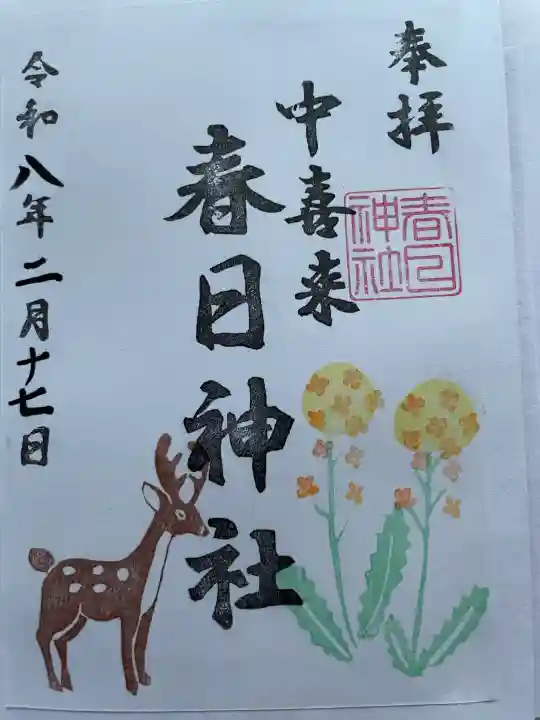 奉拝
春日
神社
中喜来
春日神社
令和八年二月十七日